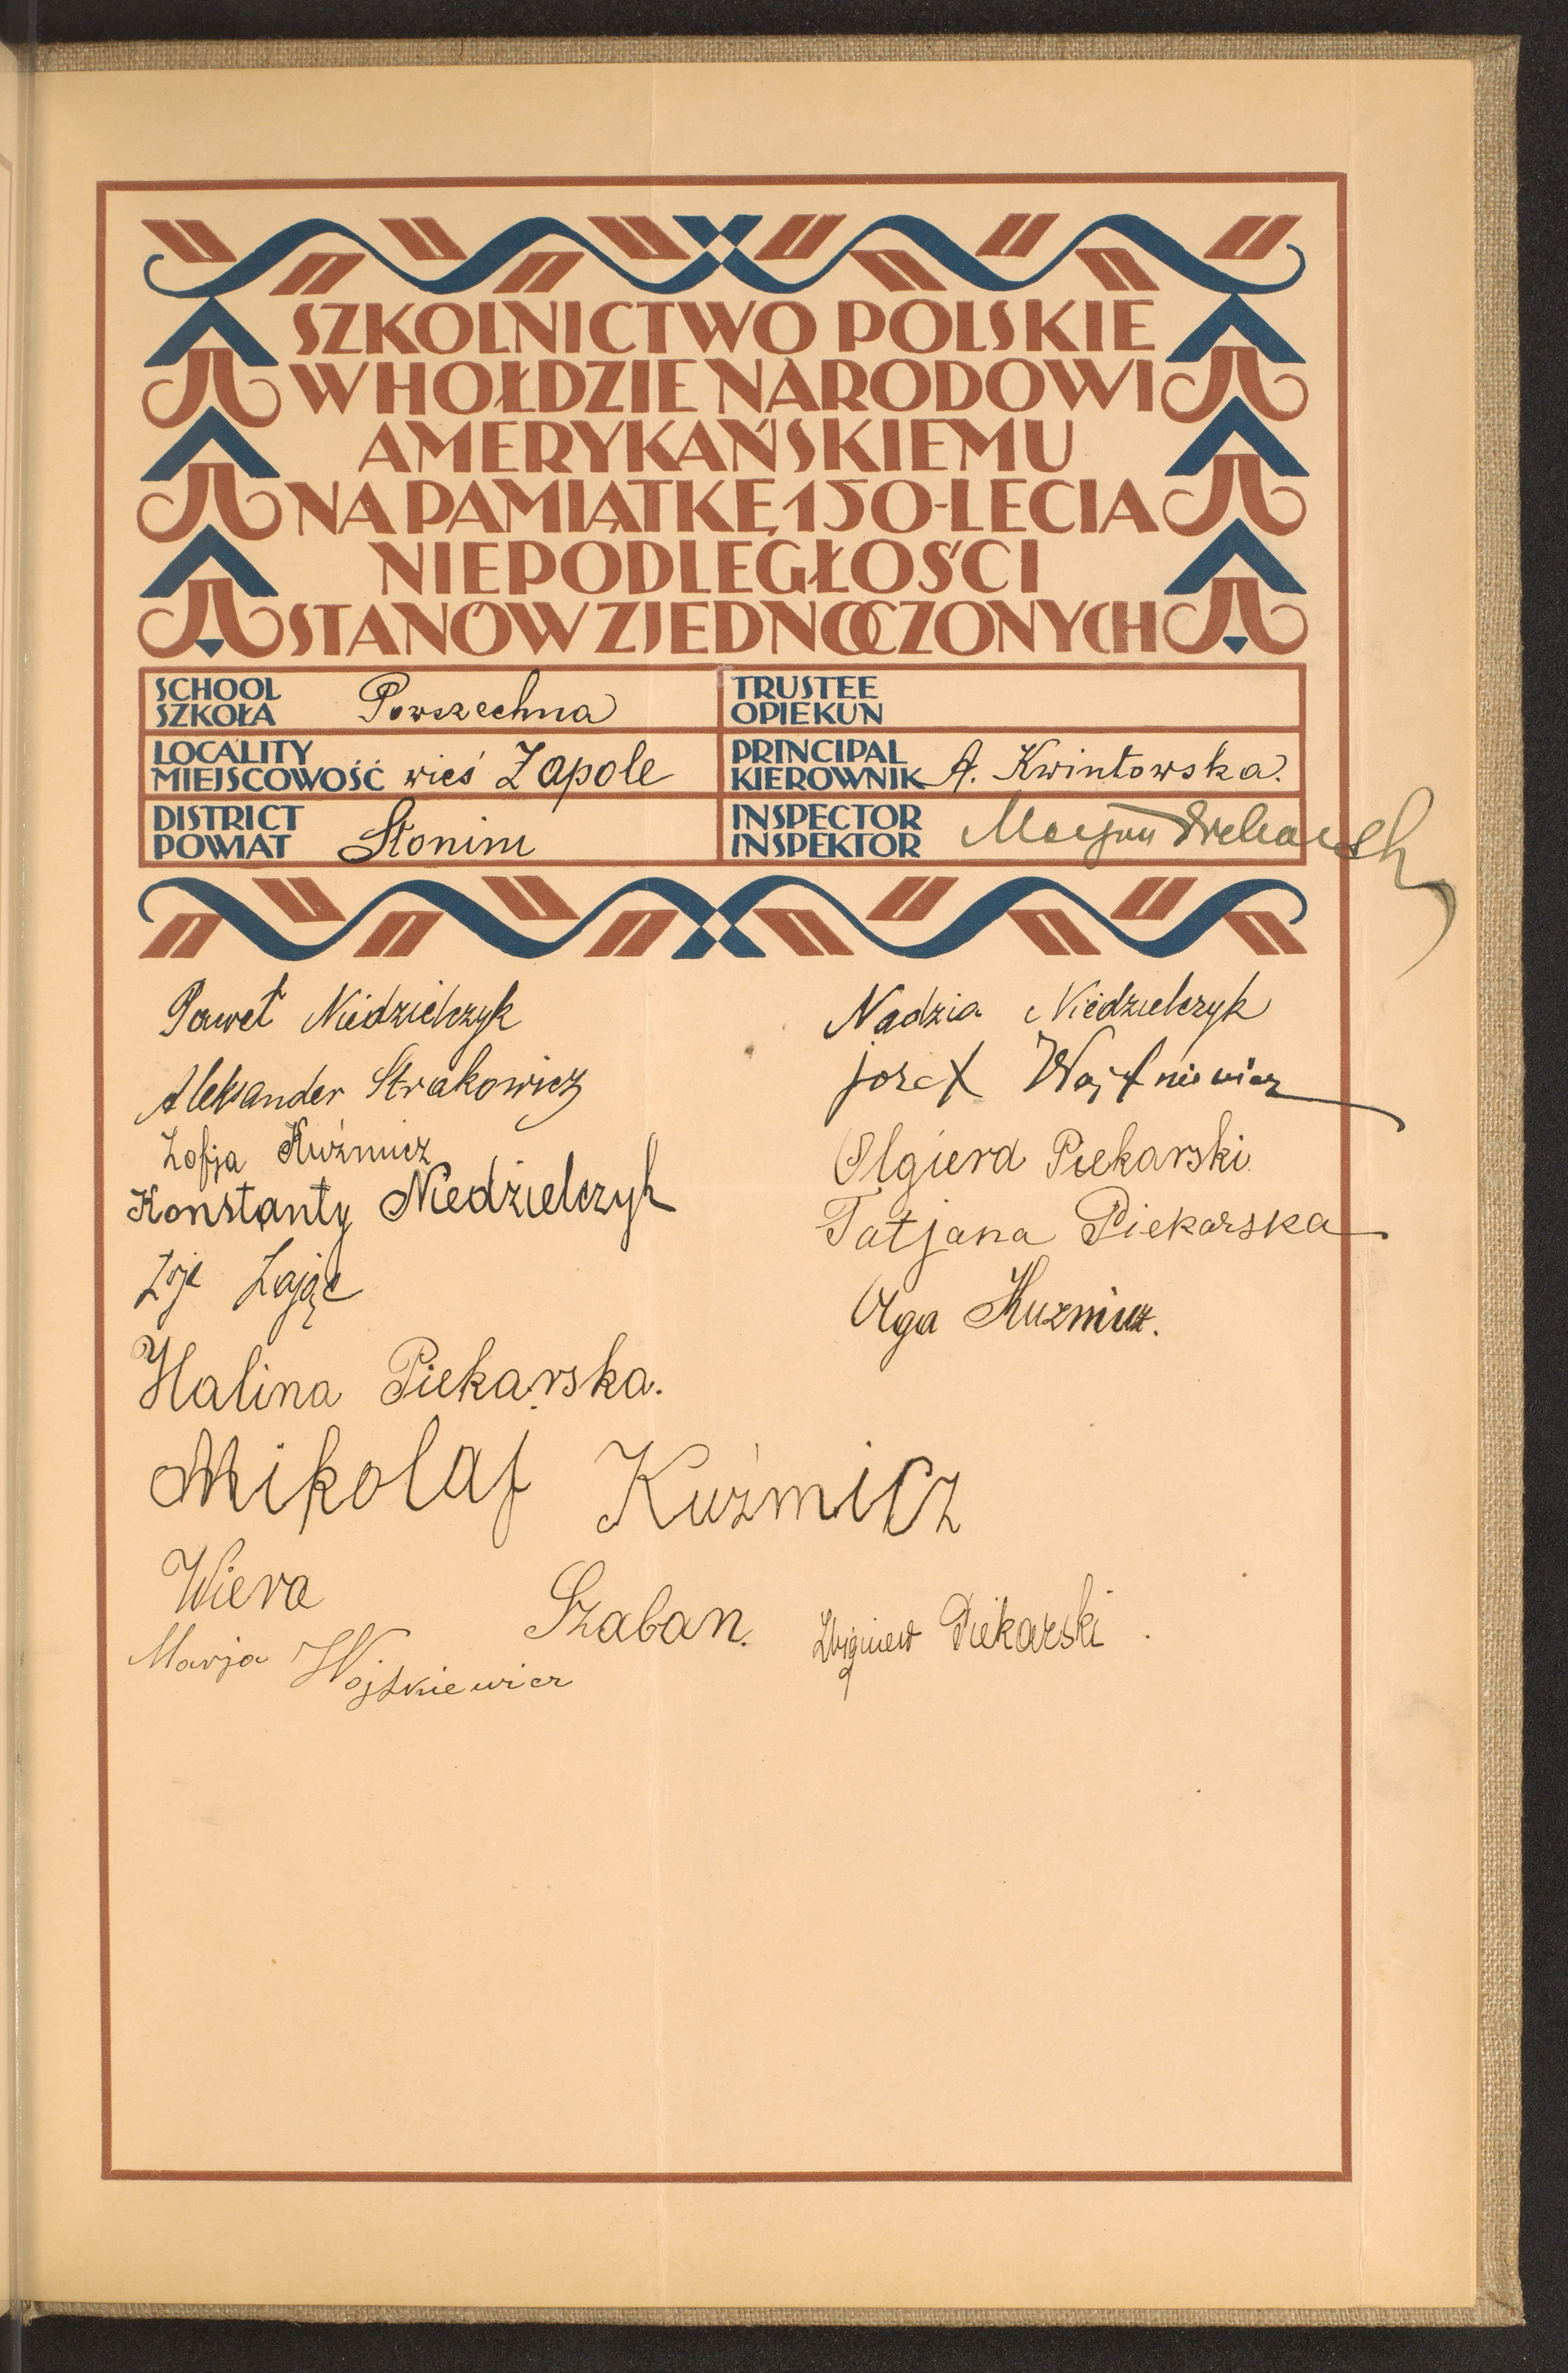 SZKOLNICTWO POLSKIE
W HOŁDZIE NARODOWI
AMERYKAŃSKIEMU
NA PAMIĄTKĘ 150-LECIA
NIEPODLEGŁOŚCI
STANÓW ZJEDNOCZONYCH
SCHOOL
SZKOŁA Powszechna
TRUSTEE
OPIEKUN
LOCALITY
MIEJSCOWOŚĆ wieś Zapole
PRINCIPAL
KIEROWNIK A. Kwintowska.
DISTRICT
POWIAT Słonim
INSPECTOR
INSPEKTOR Marjan
Paweł Niedzielczyk
Aleksander Strakowicz
Zofja Kuźmicz
Konstanty Niedzielczyk
Zając
Halina Piekarska.
Mikolaj Kuźmicz
Wiera Szaban.
Marja Wojtkiewicz
Nadzia Niedzielczyk
Olgierd Piekarski
Tatjana Piekarska
Olga Kuzmicz.
Zbigniew Piekarski